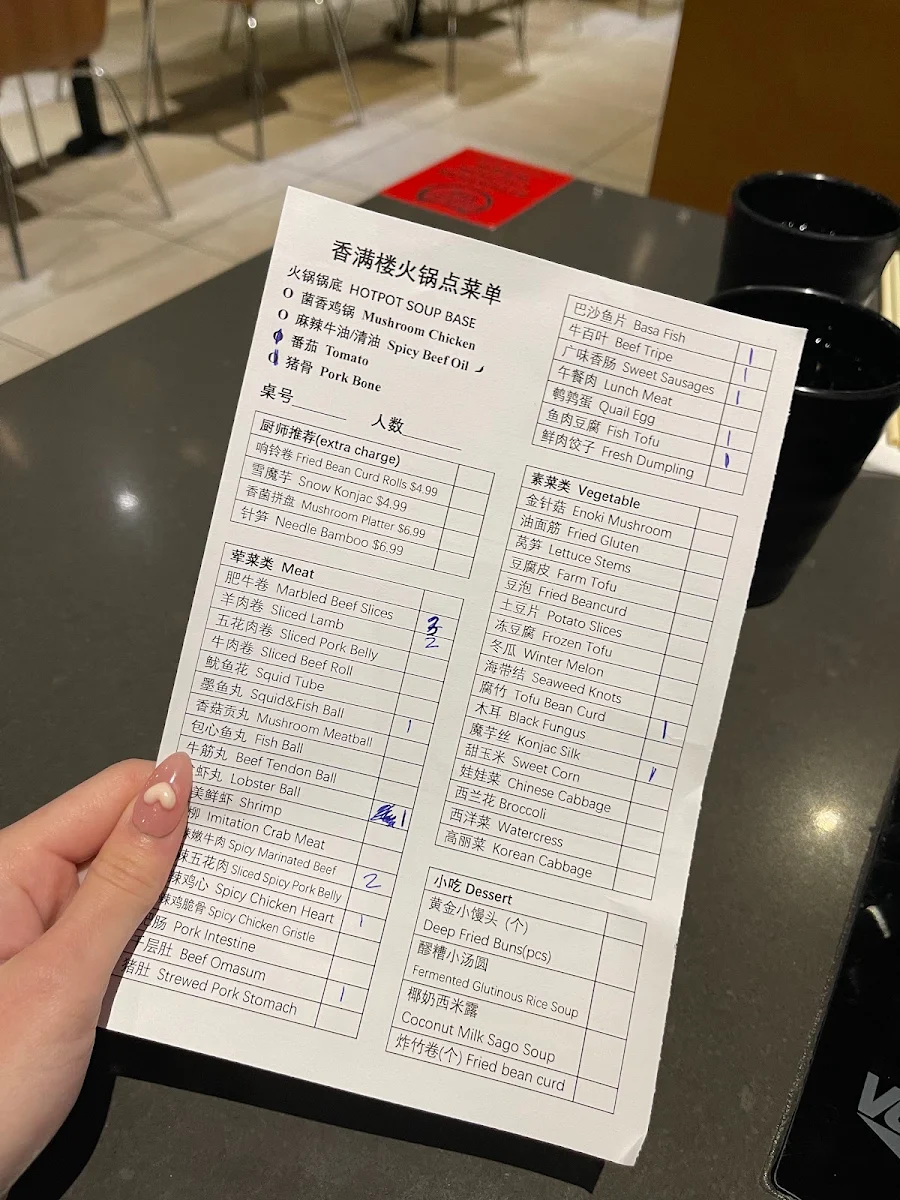 香满楼火锅点菜单
火锅锅底 HOTPOT SOUP BASE
O 菌香鸡锅 Mushroom Chicken
O 麻辣牛油/清油 Spicy Beef Oil
O 番茄 Tomato
O 猪骨 Pork Bone
桌号______ 人数______
厨师推荐(extra charge)
响铃卷 Fried Bean Curd Rolls $4.99
雪魔芋 Snow Konjac $4.99
香菌拼盘 Mushroom Platter $6.99
针笋 Needle Bamboo $6.99
荤菜类 Meat
肥牛卷 Marbled Beef Slices 3
羊肉卷 Sliced Lamb 2
五花肉卷 Sliced Pork Belly
牛肉卷 Sliced Beef Roll
鱿鱼花 Squid Tube
墨鱼丸 Squid&Fish Ball 1
香菇贡丸 Mushroom Meatball
包心鱼丸 Fish Ball
牛筋丸 Beef Tendon Ball
虾丸 Lobster Ball 1
美鲜虾 Shrimp
柳 Imitation Crab Meat
嫩牛肉 Spicy Marinated Beef 2
辣五花肉 Sliced Spicy Pork Belly
辣鸡心 Spicy Chicken Heart 1
辣鸡脆骨 Spicy Chicken Gristle
肥肠 Pork Intestine
千层肚 Beef Omasum 1
猪肚 Strewed Pork Stomach
巴沙鱼片 Basa Fish 1
牛百叶 Beef Tripe 1
广味香肠 Sweet Sausages 1
午餐肉 Lunch Meat
鹌鹑蛋 Quail Egg 1
鱼肉豆腐 Fish Tofu 1
鲜肉饺子 Fresh Dumpling
素菜类 Vegetable
金针菇 Enoki Mushroom
油面筋 Fried Gluten
莴笋 Lettuce Stems
豆腐皮 Farm Tofu
豆泡 Fried Beancurd
土豆片 Potato Slices
冻豆腐 Frozen Tofu
冬瓜 Winter Melon
海带结 Seaweed Knots
腐竹 Tofu Bean Curd 1
木耳 Black Fungus
魔芋丝 Konjac Silk 1
甜玉米 Sweet Corn
娃娃菜 Chinese Cabbage
西兰花 Broccoli
西洋菜 Watercress
高丽菜 Korean Cabbage
小吃 Dessert
黄金小馒头 (个)
Deep Fried Buns(pcs)
醪糟小汤圆
Fermented Glutinous Rice Soup
椰奶西米露
Coconut Milk Sago Soup
炸竹卷(个) Fried bean curd